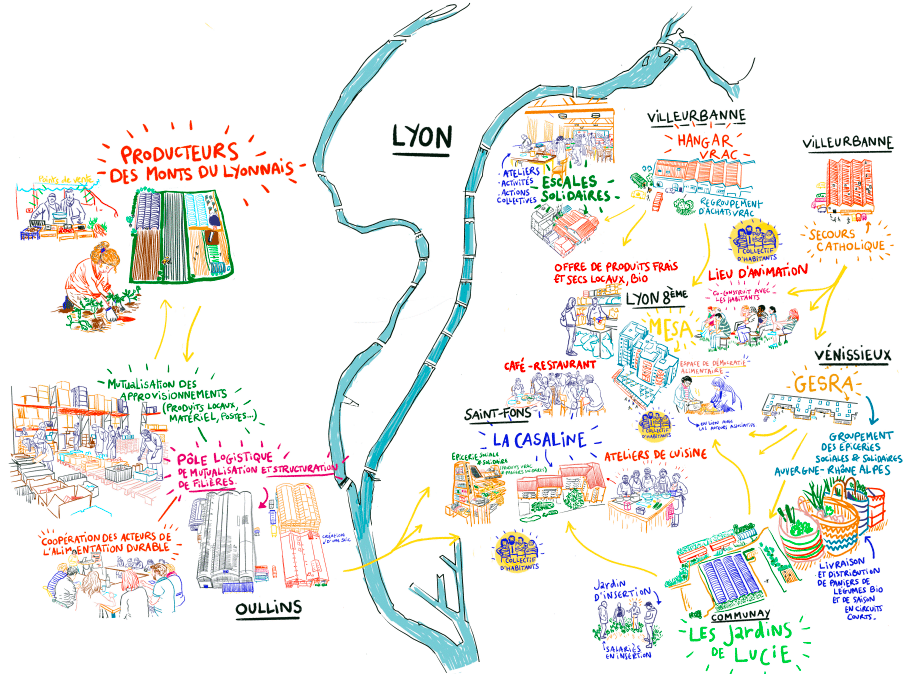 LYON
PRODUCTEURS
DES MONTS DU LYONNAIS
Points de vente
MUTUALISATION DES
APPROVISIONNEMENTS
(PRODUITS LOCAUX,
MATÉRIEL, POSTES...)
PÔLE LOGISTIQUE
DE MUTUALISATION ET STRUCTURATION
DE FILIÈRES.
COOPÉRATION DES ACTEURS DE
L'ALIMENTATION DURABLE
CRÉATION
D'UNE SCIC
OULLINS
- ATELIERS
- ACTIVITÉS
- ACTIONS
COLLECTIVES
ESCALES
SOLIDAIRES
VILLEURBANNE
HANGAR
VRAC
REGROUPEMENT
D'ACHAT VRAC
COLLECTIF
D'HABITANTS
VILLEURBANNE
SECOURS
CATHOLIQUE
OFFRE DE PRODUITS FRAIS
ET SECS LOCAUX, BIO
LYON 8ÈME
MESA
LIEU D'ANIMATION
CO-CONSTRUIT AVEC
LES HABITANTS
ESPACE DE DÉMOCRATIE
ALIMENTAIRE
EN LIEN AVEC
COLLECTIF
D'HABITANTS
CAFÉ-RESTAURANT
VÉNISSIEUX
GESRA
GROUPEMENT
DES ÉPICERIES
SOCIALES & SOLIDAIRES
AUVERGNE-RHÔNE ALPES
SAINT-FONS
LA CASALINE
ÉPICERIE SOCIALE
& SOLIDAIRE
(PRODUITS VRAC
+ PANIERS LOCAUX)
ATELIERS DE CUISINE
COLLECTIF
D'HABITANTS
JARDIN
D'INSERTION
SALARIÉS
EN INSERTION
COMMUNAY
LES JARDINS
DE LUCIE
LIVRAISON
ET DISTRIBUTION
DE PANIERS DE
LÉGUMES BIO
ET DE SAISON
EN CIRCUITS
COURTS.